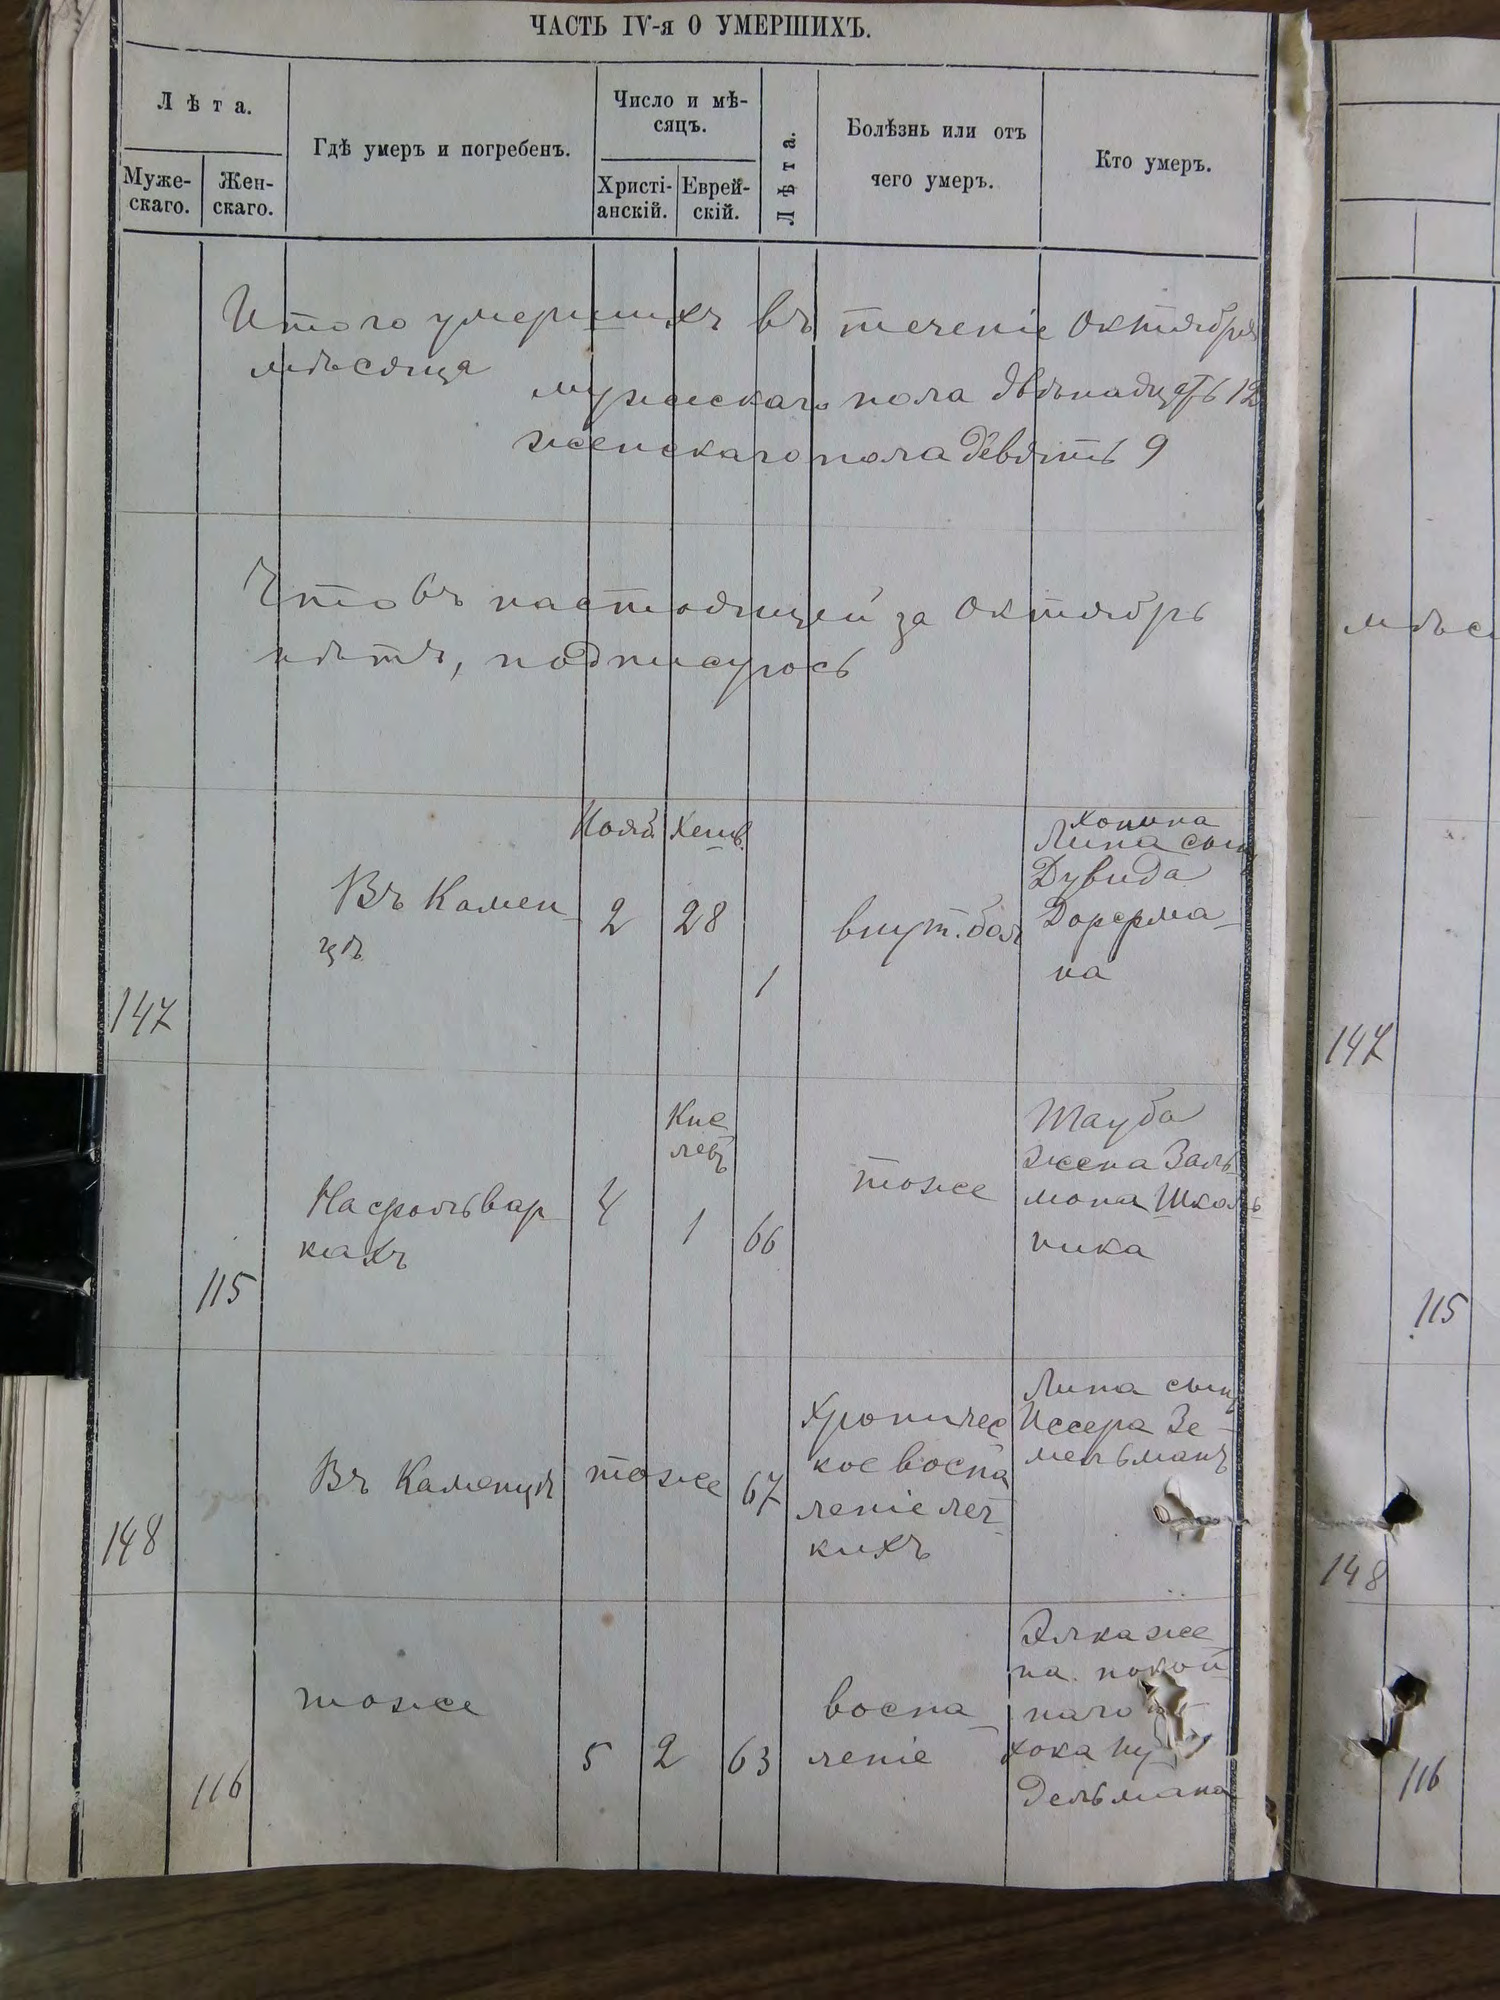 ЧАСТЬ IV-я О УМЕРШИХЪ.
Лѣта.
Муже-
скаго.
Жен-
скаго.
Гдѣ умеръ и погребенъ.
Число и мѣ-
сяцъ.
Христі-
анскій.
Еврей-
скій.
Лѣта.
Болѣзнь или отъ
чего умеръ.
Кто умеръ.
Итого умершихъ въ теченіе Октября
мѣсяца
мужескаго пола двѣнадцать 12
женскаго пола девять 9
Что въ настоящей за Октябрь
нѣтъ, подписуюсь
мѣся
147
Въ Камен-
цѣ
Нояб.
2
Хешв.
28
1
внут. бол
Хонина
Липа сынъ
Дувида
Дорфма-
на
147
115
На фольвар
кахъ
4
Кис
левъ
1
66
тоже
Тауба
жена Заль
мона Школь
ника
115
148
Въ Каменцѣ
тоже
67
Хроничес
кое воспа
леніе лег-
кихъ
Липа сынъ
Иссера Зе-
мельманъ
148
116
тоже
5
2
63
воспа-
леніе
Элка же
на покой
наго
хока Ну
дельмана
116